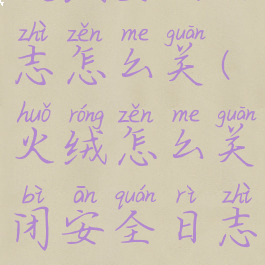 zhì zěn me guān
志怎么关(
huǒ róng zěn me guān
火绒怎么关
bì ān quán rì zhì
闭安全日志